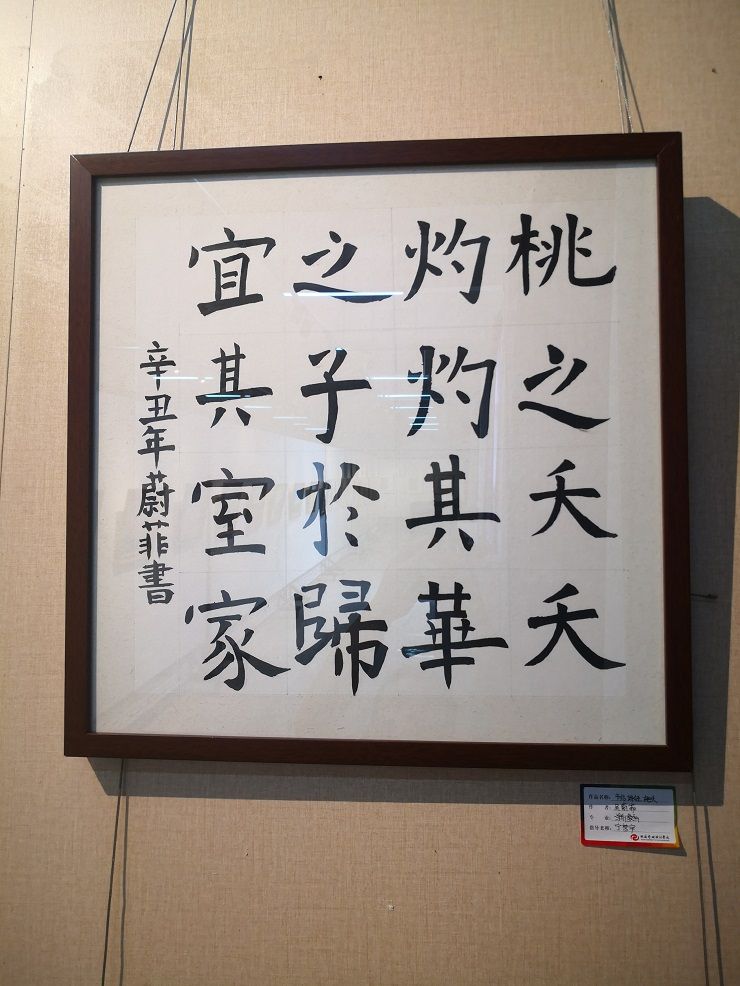 桃之夭夭
灼灼其華
之子於歸
宜其室家
辛丑年蔚菲書
作品名称:
作 者:
专 业:
指导老师: